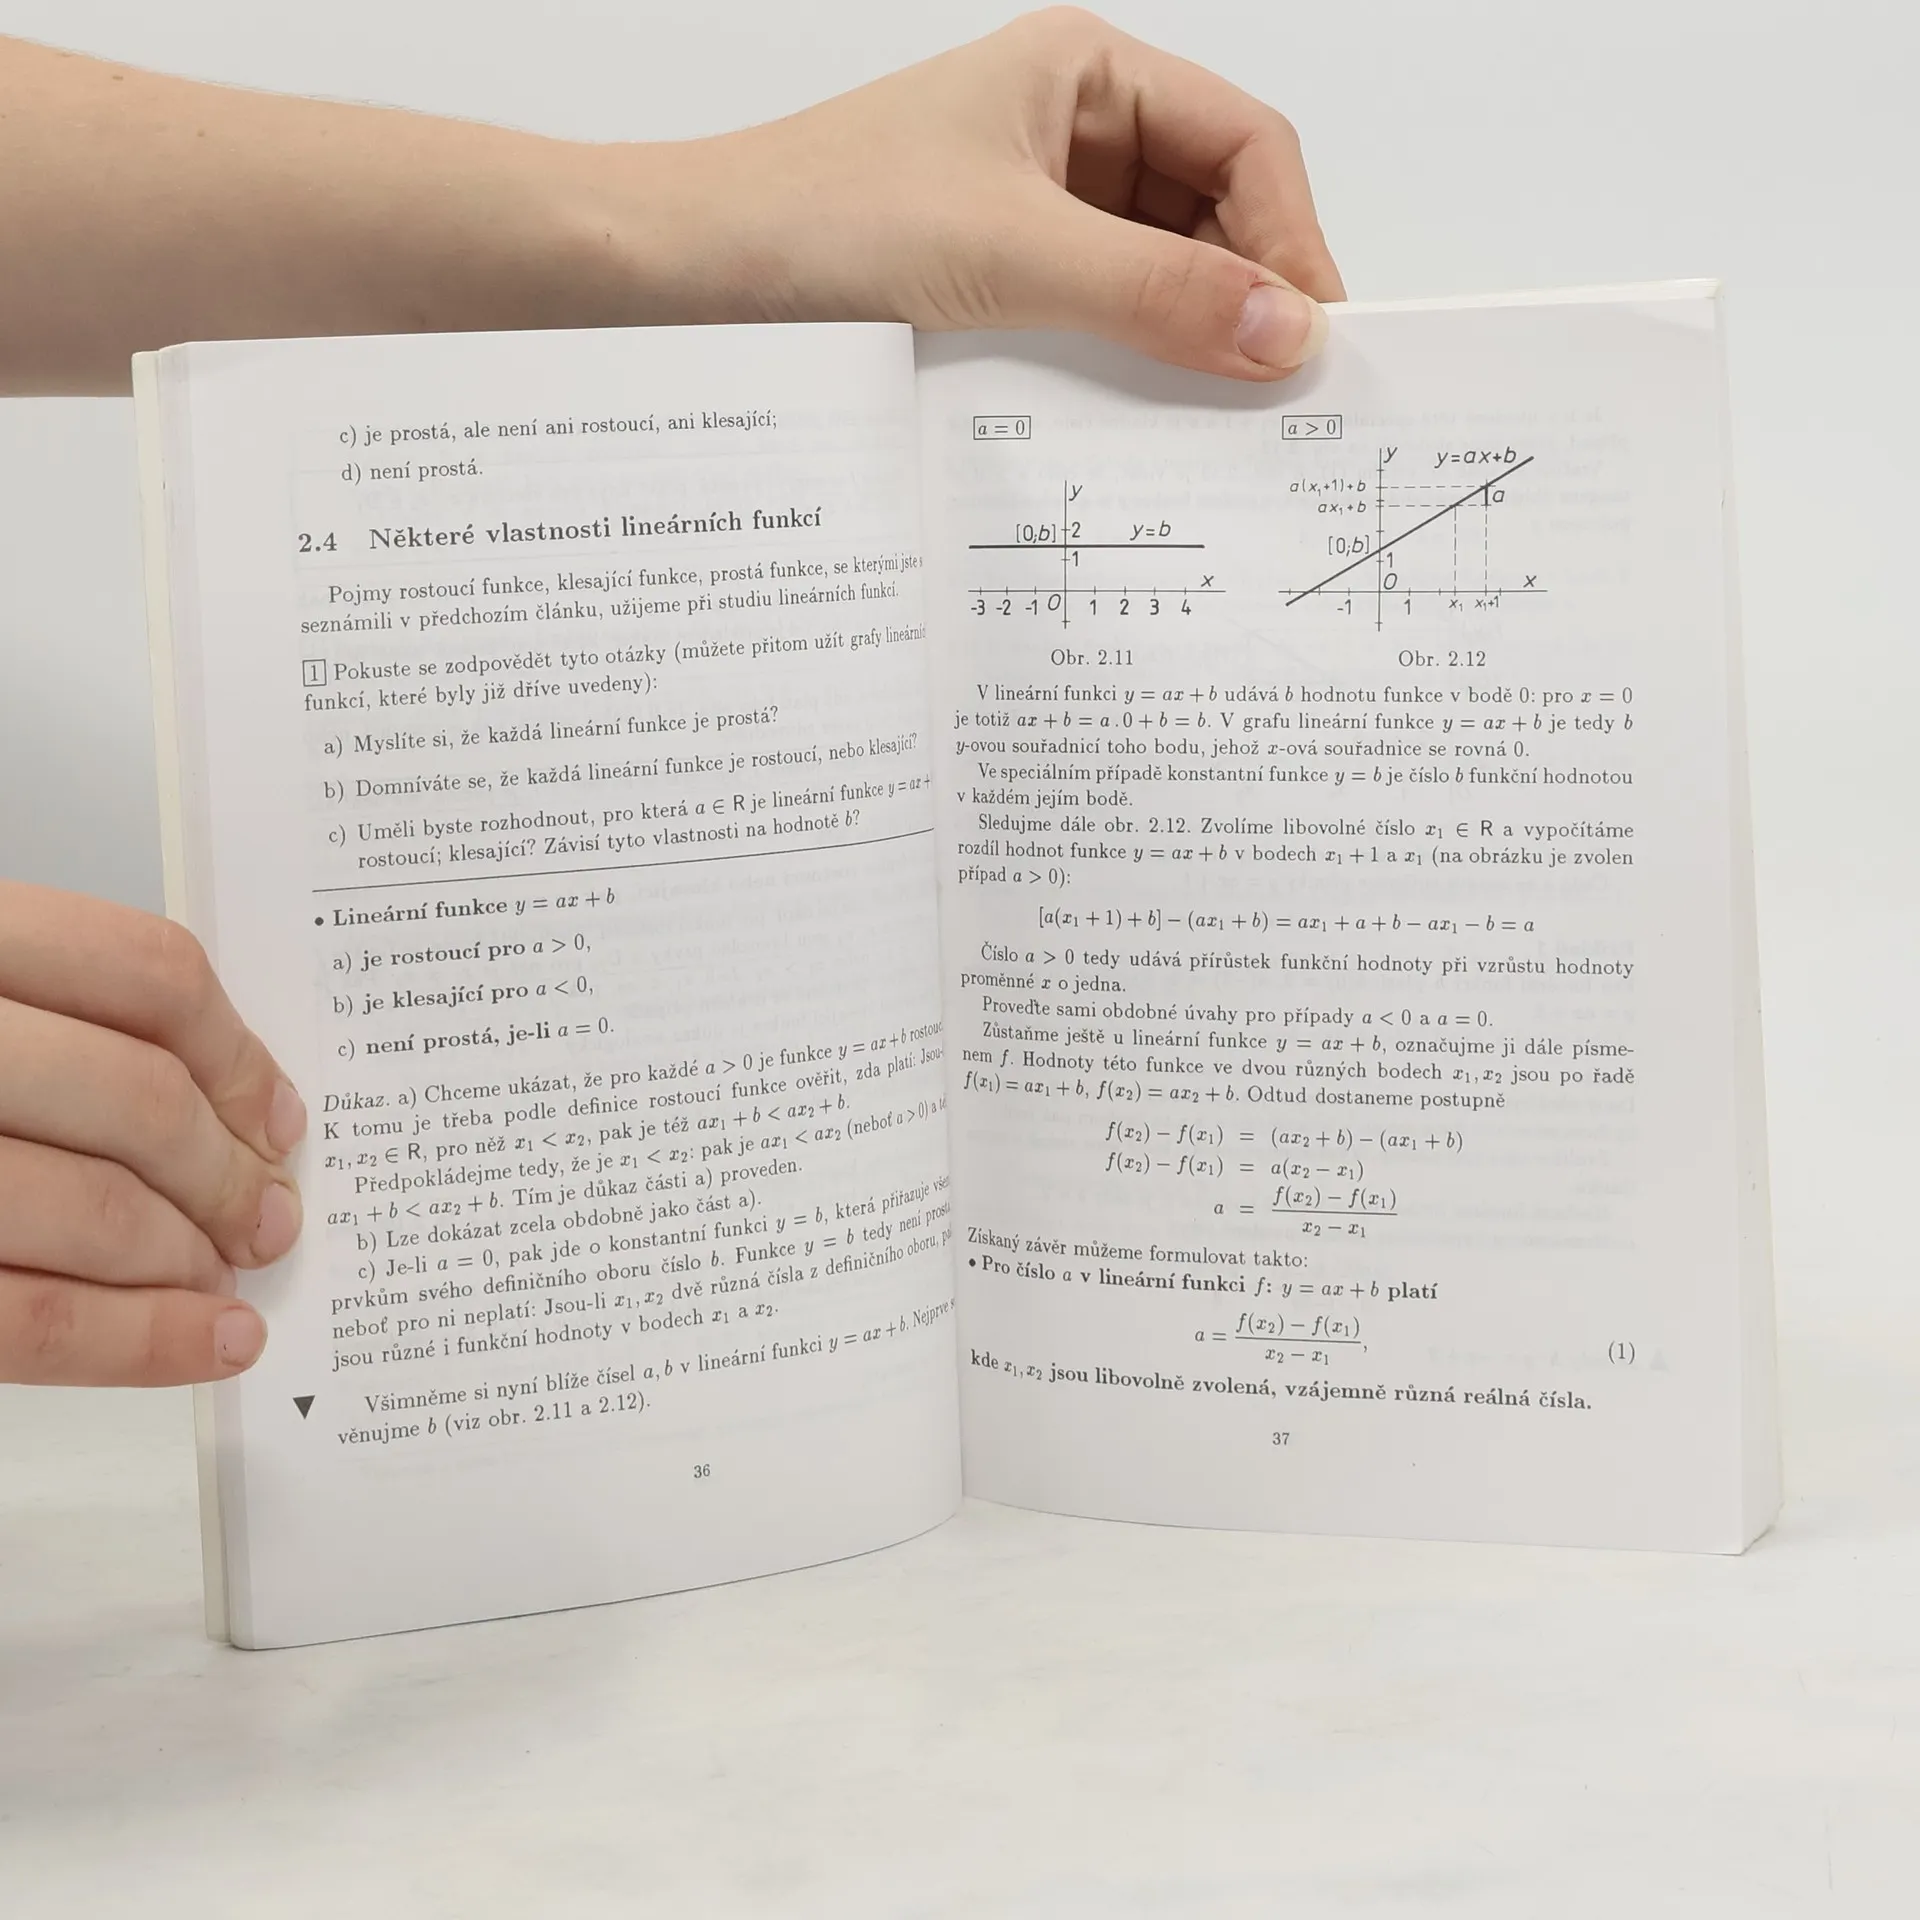 c) je prostá, ale není ani rostoucí, ani klesající;
d) není prostá.
2.4 Některé vlastnosti lineárních funkcí
Pojmy rostoucí funkce, klesající funkce, prostá funkce, se kterými jste s
seznámili v předchozím článku, užijeme při studiu lineárních funkcí.
1 Pokuste se zodpovědět tyto otázky (můžete přitom užít grafy lineární
funkcí, které byly již dříve uvedeny):
a) Myslíte si, že každá lineární funkce je prostá?
b) Domníváte se, že každá lineární funkce je rostoucí, nebo klesající?
c) Uměli byste rozhodnout, pro která a ∈ R je lineární funkce y = ax +
rostoucí; klesající? Závisí tyto vlastnosti na hodnotě b?
• Lineární funkce y = ax + b
a) je rostoucí pro a > 0,
b) je klesající pro a < 0,
c) není prostá, je-li a = 0.
Důkaz. a) Chceme ukázat, že pro každé a > 0 je funkce y = ax + b rostouc
K tomu je třeba podle definice rostoucí funkce ověřit, zda platí: Jsou-
x₁, x₂ ∈ R, pro něž x₁ < x₂, pak je též ax₁ + b < ax₂ + b.
Předpokládejme tedy, že je x₁ < x₂: pak je ax₁ < ax₂ (neboť a > 0) a
ax₁ + b < ax₂ + b. Tím je důkaz části a) proveden.
b) Lze dokázat zcela obdobně jako část a).
c) Je-li a = 0, pak jde o konstantní funkci y = b, která přiřazuje
prvkům svého definičního oboru číslo b. Funkce y = b tedy není prostá
neboť pro ni neplatí: Jsou-li x₁, x₂ dvě různá čísla z definičního oboru,
jsou různé i funkční hodnoty v bodech x₁ a x₂.
▼ Všimněme si nyní blíže čísel a, b v lineární funkci y = ax + b. Nejprve s
věnujme b (viz obr. 2.11 a 2.12).
36
a = 0
y
[0;b] 2 y=b
1
x
-3 -2 -1 0 1 2 3 4
Obr. 2.11
a > 0
y y=ax+b
a(x₁+1)+b
a
ax₁+b
[0;b]
1
0 x
-1 1 x₁ x₁+1
Obr. 2.12
V lineární funkci y = ax + b udává b hodnotu funkce v bodě 0: pro x = 0
je totiž ax + b = a.0 + b = b. V grafu lineární funkce y = ax + b je tedy b
y-ovou souřadnicí toho bodu, jehož x-ová souřadnice se rovná 0.
Ve speciálním případě konstantní funkce y = b je číslo b funkční hodnotou
v každém jejím bodě.
Sledujme dále obr. 2.12. Zvolíme libovolné číslo x₁ ∈ R a vypočítáme
rozdíl hodnot funkce y = ax + b v bodech x₁ + 1 a x₁ (na obrázku je zvolen
případ a > 0):
[a(x₁ + 1) + b] − (ax₁ + b) = ax₁ + a + b − ax₁ − b = a
Číslo a > 0 tedy udává přírůstek funkční hodnoty při vzrůstu hodnoty
proměnné x o jedna.
Proveďte sami obdobné úvahy pro případy a < 0 a a = 0.
Zůstaňme ještě u lineární funkce y = ax + b, označujme ji dále písme-
nem f. Hodnoty této funkce ve dvou různých bodech x₁, x₂ jsou po řadě
f(x₁) = ax₁ + b, f(x₂) = ax₂ + b. Odtud dostaneme postupně
f(x₂) − f(x₁) = (ax₂ + b) − (ax₁ + b)
f(x₂) − f(x₁) = a(x₂ − x₁)
f(x₂) − f(x₁)
a =
x₂ − x₁
Získaný závěr můžeme formulovat takto:
• Pro číslo a v lineární funkci f: y = ax + b platí
f(x₂) − f(x₁)
a = , (1)
x₂ − x₁
kde x₁, x₂ jsou libovolně zvolená, vzájemně různá reálná čísla.
37